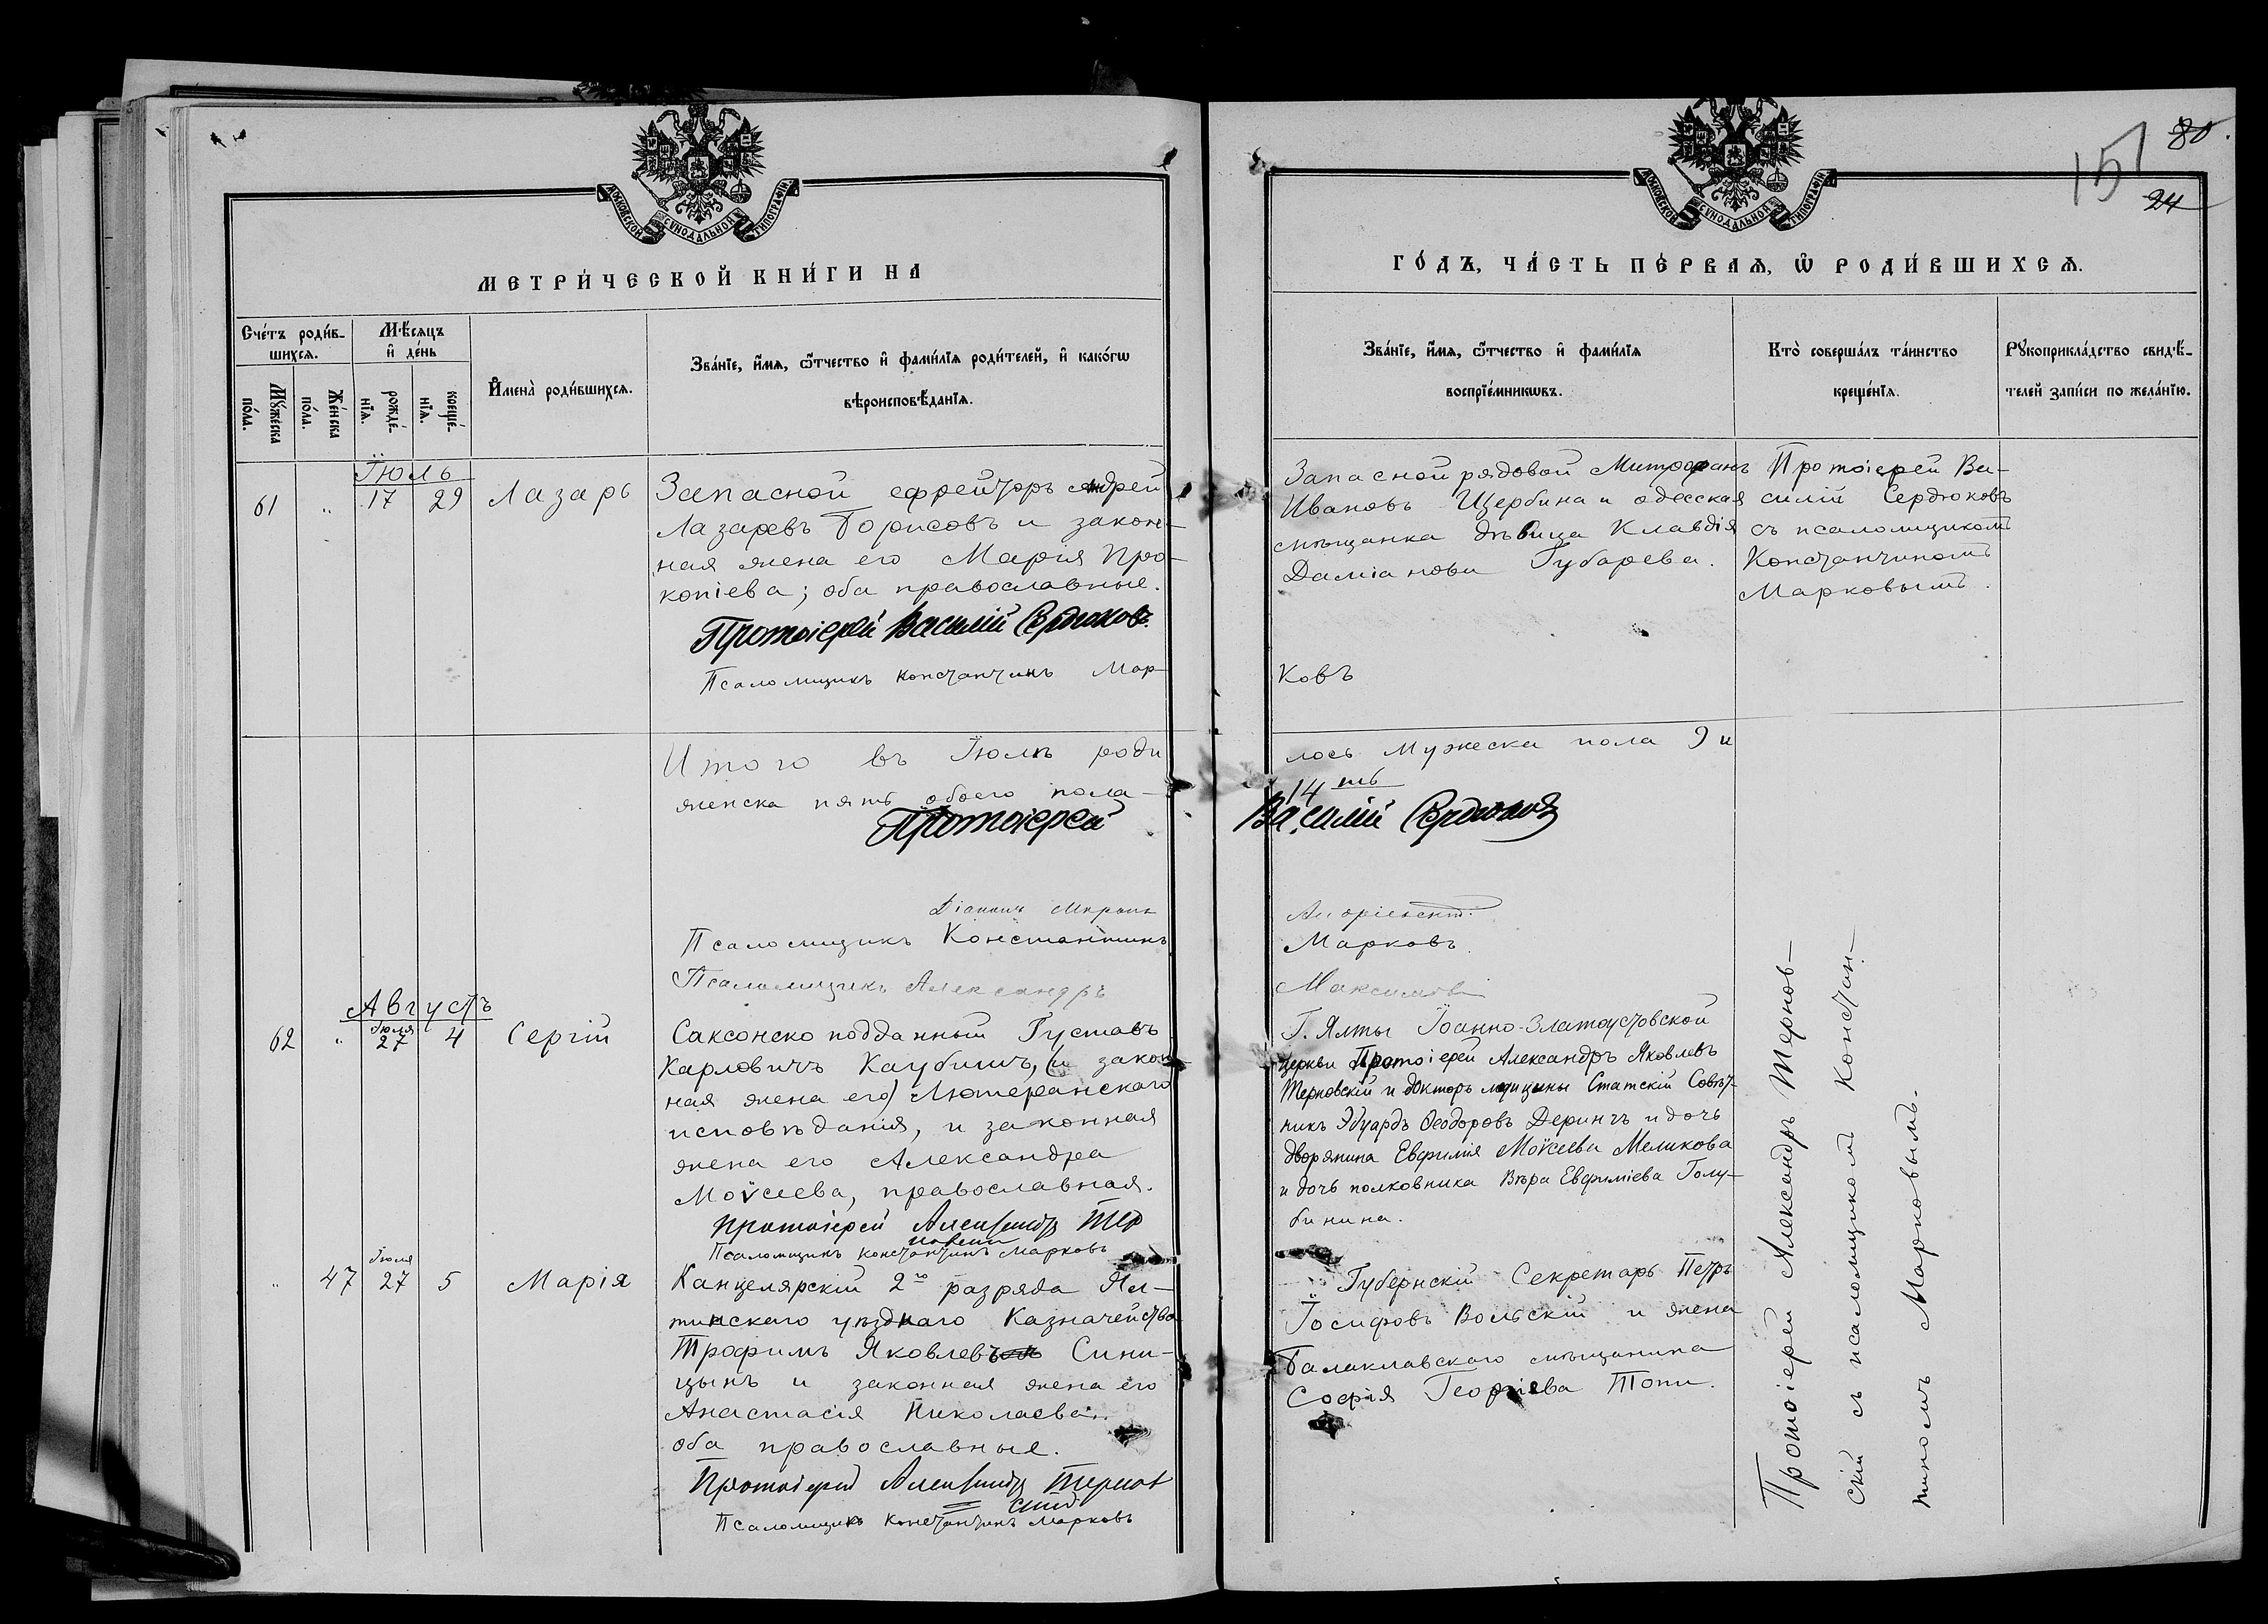 МОСКОВСКОЙ СѴНОДАЛЬНОЙ ТИПОГРАФІИ
МЕТРИ́ЧЕСКОЙ КНИ́ГИ НА
Сче́тъ роди́в-
шихсѧ.
Мѣ́сѧцъ
и҆ де́нь
Мꙋ́жеска
по́ла.
Же́нска
по́ла.
рожде́-
нїѧ.
креще́-
нїѧ.
И҆мена̀ роди́вшихсѧ.
Зва́нїе, и҆́мѧ, ѻ҆́тчество и҆ фами́лїѧ роди́телей, и҆ како́гѡ
вѣроисповѣ́данїѧ.
Іюль
61 " 17 29 Лазарь
Запасной ефрейторъ Андрей
Лазаревъ Борисовъ и закон-
ная жена его Марія Про-
копіева; оба православные.
Протоіерей Василій Сердюковъ.
Псаломщикъ Константинъ Мар-
Итого въ Іюлѣ роди
женска пять обоего пола –
Протоіерей
Діаконъ
Псаломщикъ Константинъ
Псаломщикъ Александръ
Августъ
62 " Іюля 27 4 Сергій
Саксонско подданный Густавъ
Карловичъ Каубишъ, (и закон
ная жена его) Лютеранскаго
исповѣданія, и законная
жена его Александра
Моѵсеева, православная.
Протоіерей Александръ Тер
новскій
Псаломщикъ Константинъ Марковъ
" 47 Іюля 27 5 Марія
Канцелярскій 2го разряда Ял-
тинскаго уѣзднаго Казначейства
Трофимъ Яковлевъ Сини-
цынъ и законная жена его
Анастасія Николаева..
оба православные.
Протоіерей Александръ Тернов
скій
Псаломщикъ Константинъ Марковъ
151
80.
24
МОСКОВСКОЙ СѴНОДАЛЬНОЙ ТИПОГРАФІИ
ГО́ДЪ, ЧА́СТЬ ПЕ́РВАѦ, Ѽ РОДИ́ВШИХСѦ.
Зва́нїе, и҆́мѧ, ѻ҆́тчество и҆ фами́лїѧ
воспрїе́мникѡвъ.
Кто̀ соверша́лъ та́инство
креще́нїѧ.
Рꙋкоприкла́дство свидѣ́-
телей запи́си по жела́нїю.
Запасной рядовой Митрофанъ
Ивановъ Щербина и одесская
мѣщанка дѣвица Клавдія
Даміанова Губарева.
Протоіерей Ва-
силій Сердюковъ
съ псаломщикомъ
Константиномъ
Марковымъ.
ковъ
лось Мужеска пола 9 и
14ть
Василій Сердюковъ
Марковъ.
Г. Ялты Іоанно-Златоустовской
церкви Протоіерей Александръ Яковлевъ
Терновскій и докторъ медицины Статскій Совѣт-
никъ Эдуардъ Ѳеодоровъ Дерингъ и дочь
дворянина Евфимія Моѵсеева Меликова
и дочь полковника Вѣра Евфиміева Голу-
бинина.
Губернскій Секретарь Петръ
Іосифовъ Вольскій и жена
Балаклавскаго мѣщанина
Софія Георгіева Топи.
Протоіерей Александръ Тернов-
скій съ псаломщикомъ Констан-
тиномъ Марковымъ.